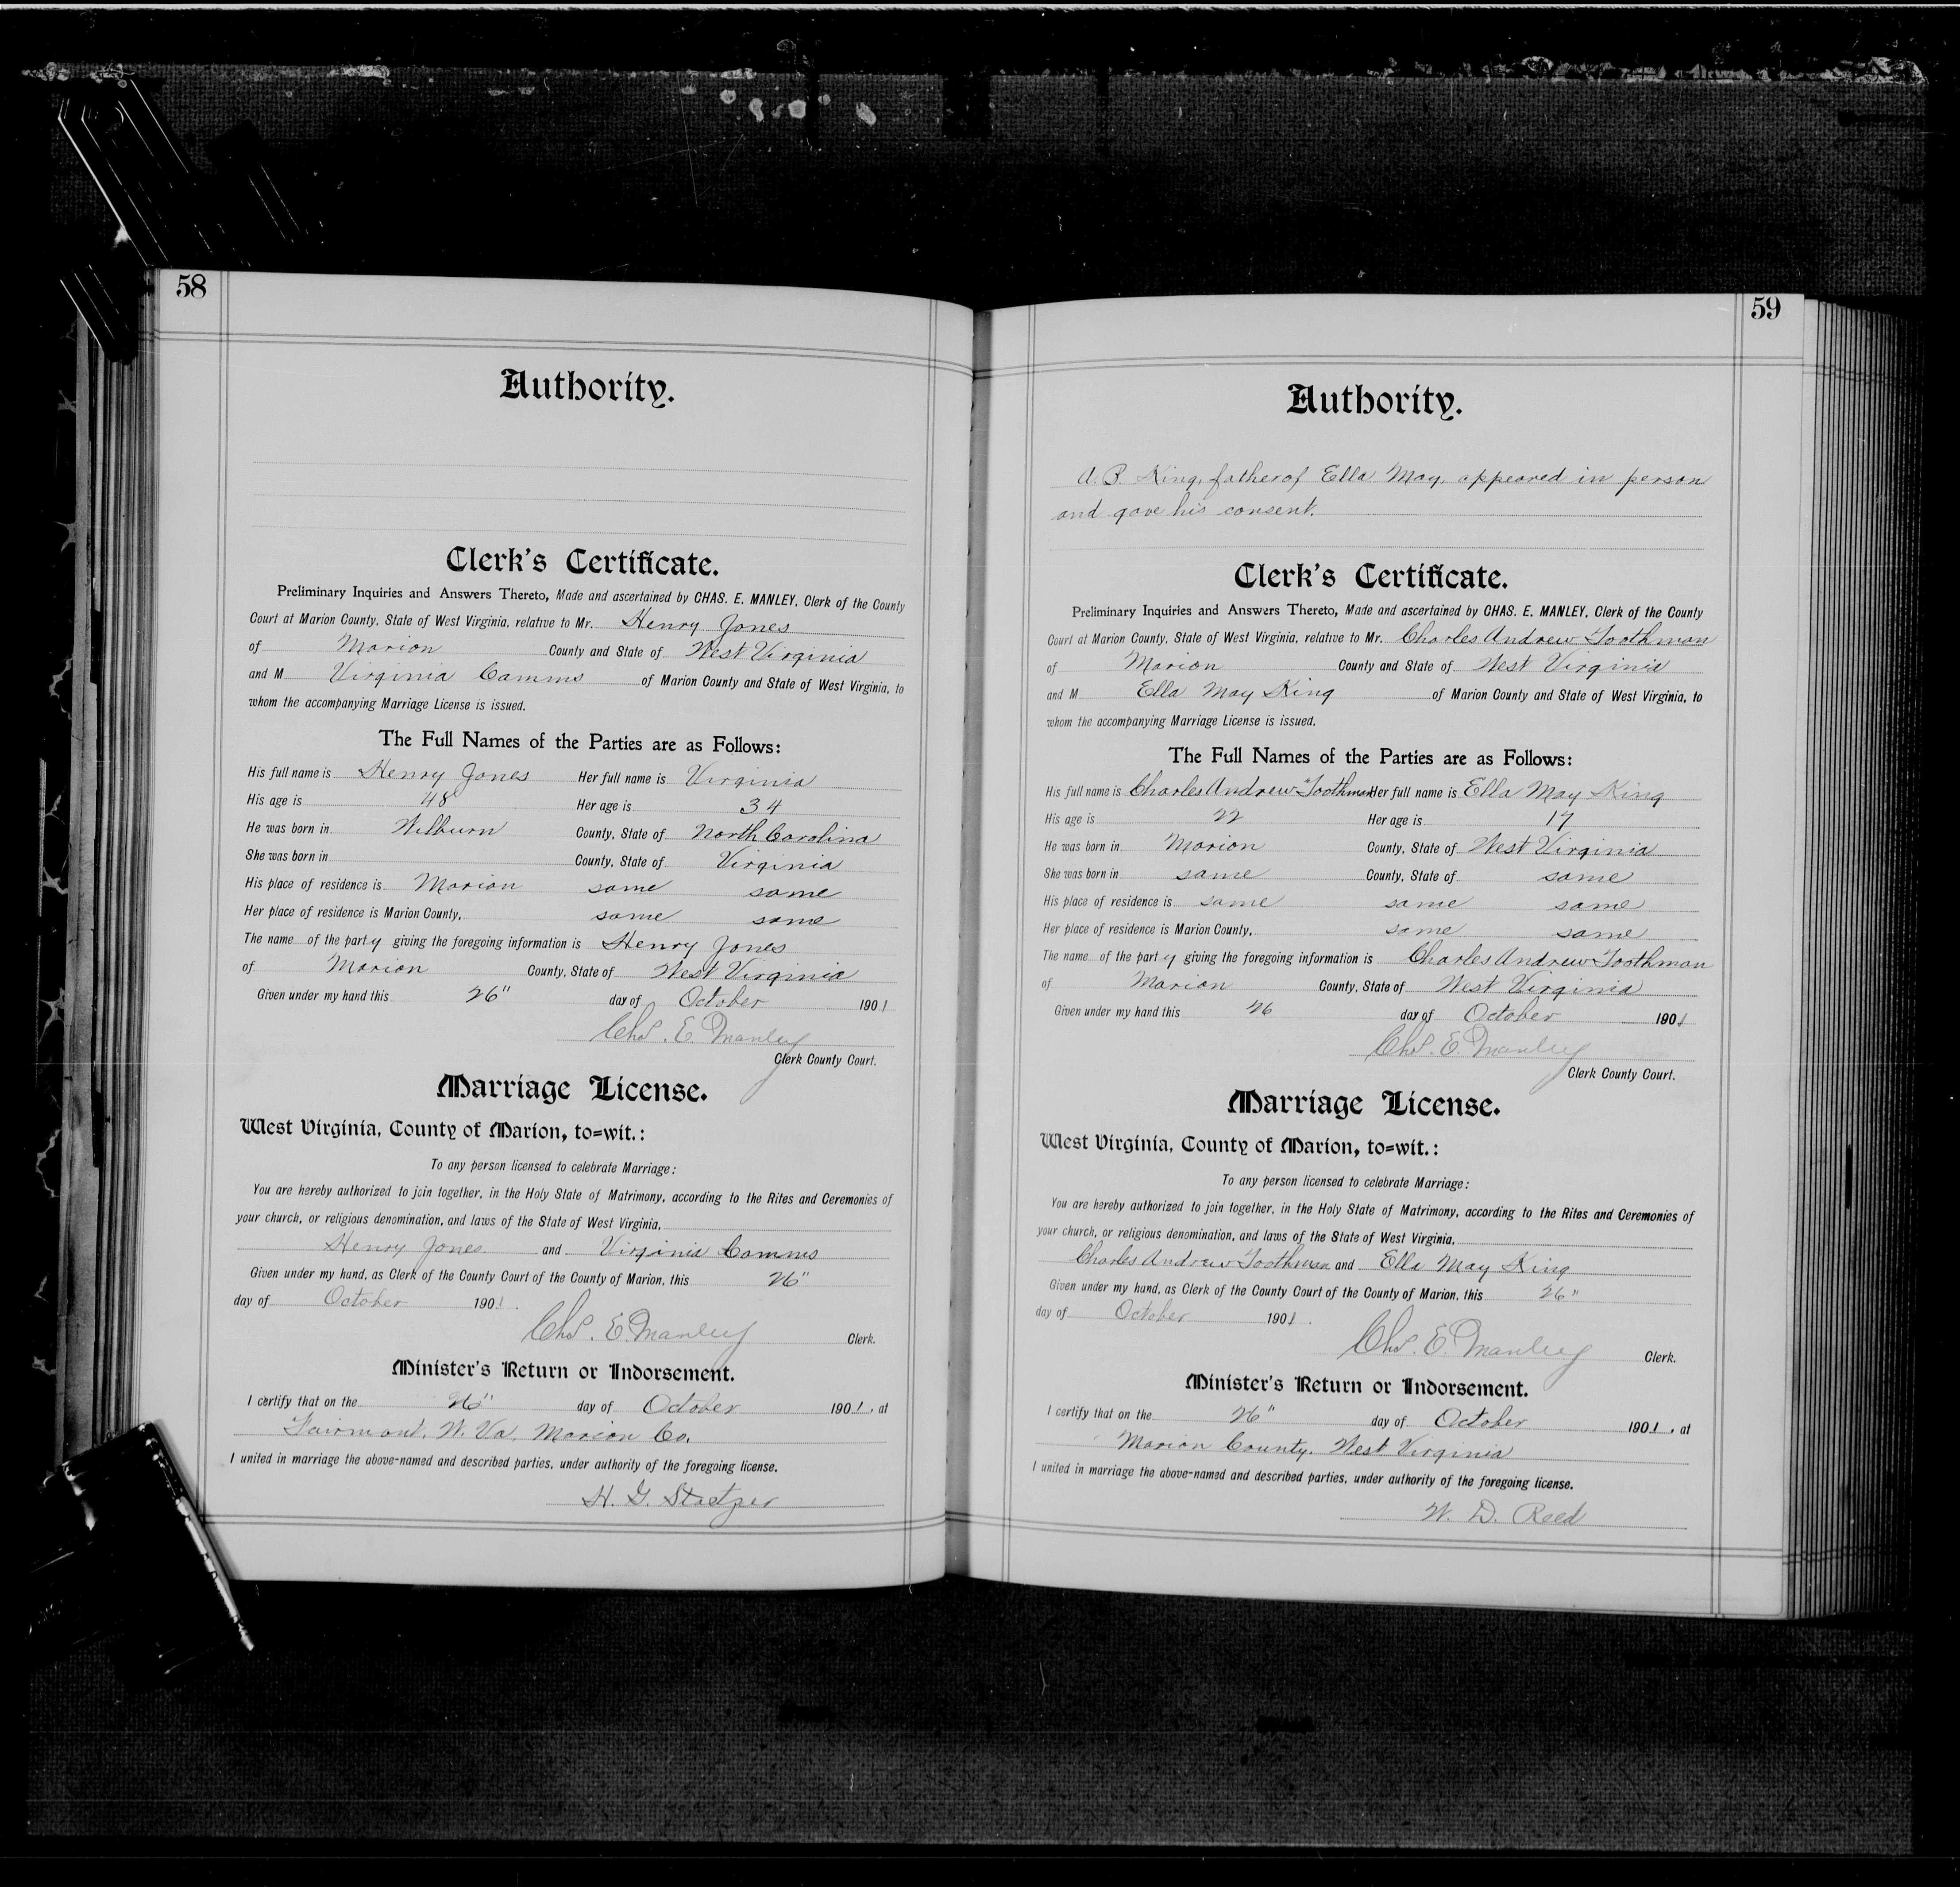 58
Authority.
Clerk's Certificate.
Preliminary Inquiries and Answers Thereto, Made and ascertained by CHAS. E. MANLEY, Clerk of the County
Court at Marion County, State of West Virginia, relative to Mr. Henry Jones
of Marion County and State of West Virginia
and M Virginia Camms of Marion County and State of West Virginia, to
whom the accompanying Marriage License is issued.
The Full Names of the Parties are as Follows:
His full name is Henry Jones Her full name is Virginia
His age is 48 Her age is 34
He was born in Wilburn County, State of North Carolina
She was born in County, State of Virginia
His place of residence is Marion same same
Her place of residence is Marion County, same same
The name of the party giving the foregoing information is Henry Jones
of Marion County, State of West Virginia
Given under my hand this 26" day of October 1901
Chs. E. Manley
Clerk County Court.
Marriage License.
West Virginia, County of Marion, to=wit.:
To any person licensed to celebrate Marriage:
You are hereby authorized to join together, in the Holy State of Matrimony, according to the Rites and Ceremonies of
your church, or religious denomination, and laws of the State of West Virginia,
Henry Jones and Virginia Camms
Given under my hand, as Clerk of the County Court of the County of Marion, this 26"
day of October 1901.
Chs. E. Manley Clerk.
Minister's Return or Indorsement.
I certify that on the 26" day of October 1901, at
Fairmont, W. Va. Marion Co.
I united in marriage the above-named and described parties, under authority of the foregoing license.
H. G. Stoetzer
59
Authority.
A. B. King, father of Ella May, appeared in person
and gave his consent.
Clerk's Certificate.
Preliminary Inquiries and Answers Thereto, Made and ascertained by CHAS. E. MANLEY, Clerk of the County
Court at Marion County, State of West Virginia, relative to Mr. Charles Andrew Toothman
of Marion County and State of West Virginia
and M Ella May King of Marion County and State of West Virginia, to
whom the accompanying Marriage License is issued.
The Full Names of the Parties are as Follows:
His full name is Charles Andrew Toothman Her full name is Ella May King
His age is 22 Her age is 17
He was born in Marion County, State of West Virginia
She was born in same County, State of same
His place of residence is same same same
Her place of residence is Marion County, same same
The name of the party giving the foregoing information is Charles Andrew Toothman
of Marion County, State of West Virginia
Given under my hand this 26 day of October 1901
Chs. E. Manley
Clerk County Court.
Marriage License.
West Virginia, County of Marion, to=wit.:
To any person licensed to celebrate Marriage:
You are hereby authorized to join together, in the Holy State of Matrimony, according to the Rites and Ceremonies of
your church, or religious denomination, and laws of the State of West Virginia,
Charles Andrew Toothman and Ella May King
Given under my hand, as Clerk of the County Court of the County of Marion, this 26"
day of October 1901.
Chs. E. Manley Clerk.
Minister's Return or Indorsement.
I certify that on the 26" day of October 1901, at
Marion County, West Virginia
I united in marriage the above-named and described parties, under authority of the foregoing license.
W. D. Reed